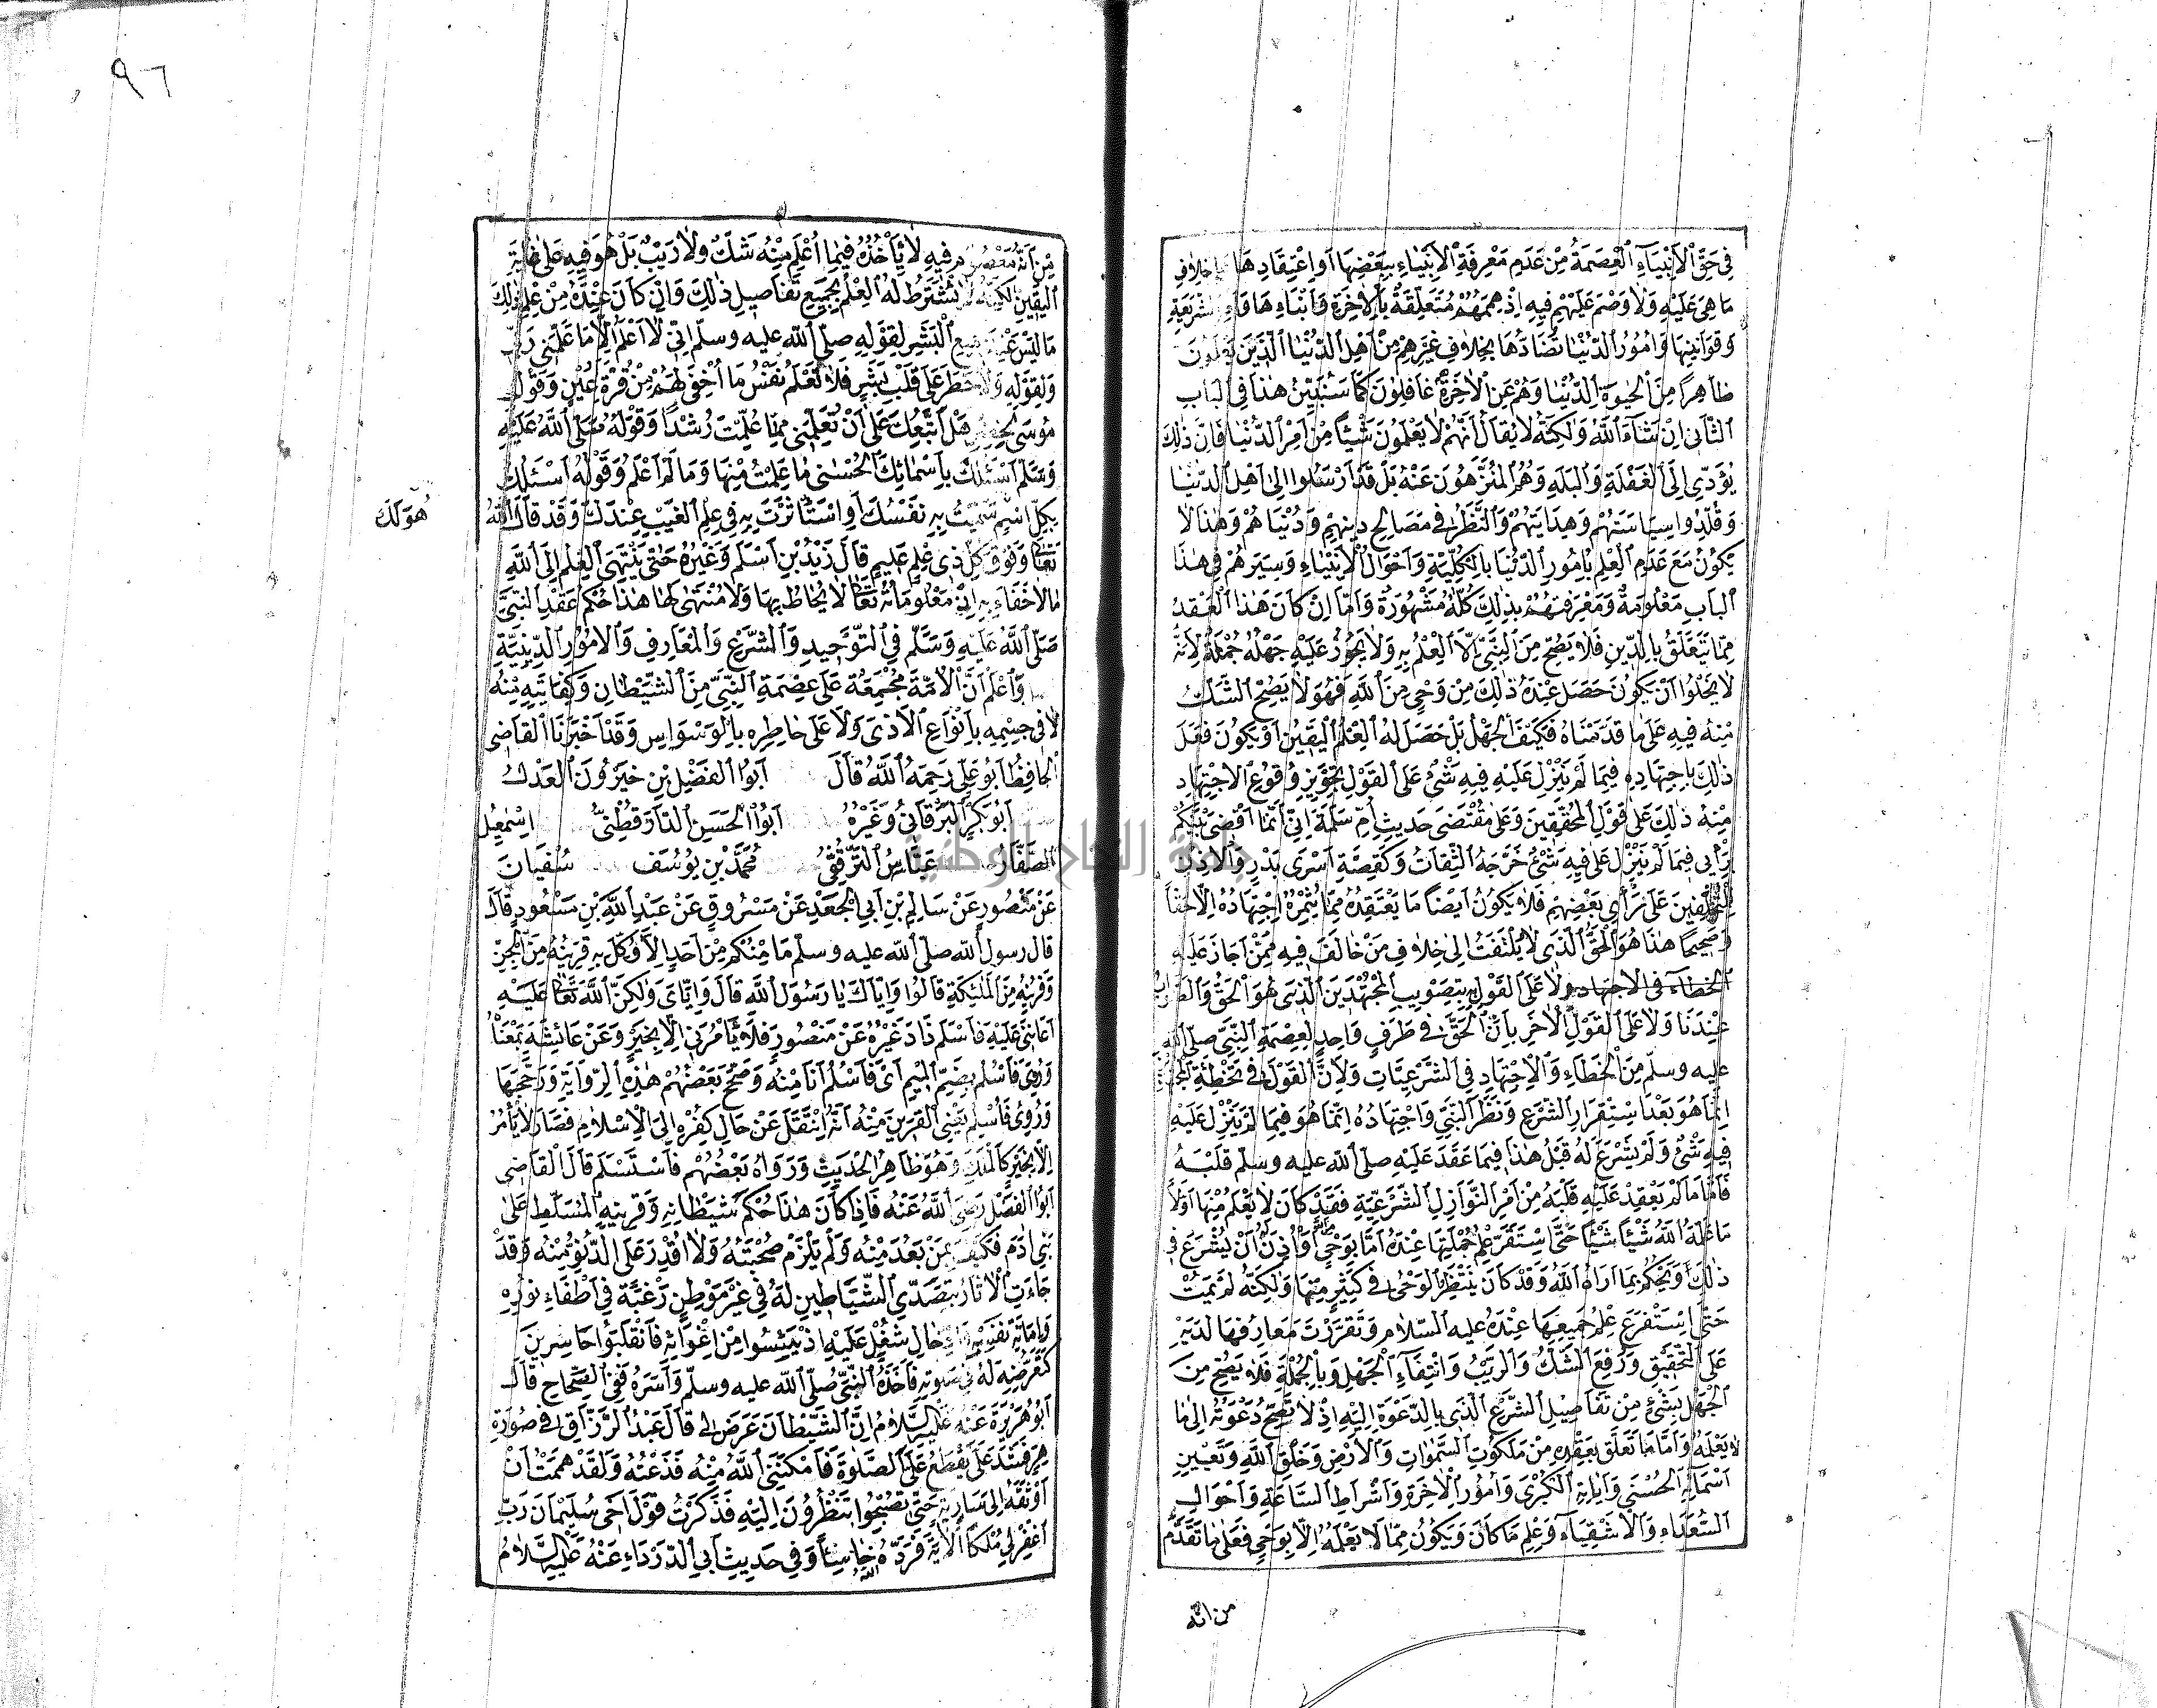 ٩٦
في حَقِّ الْاَنْبِيَآءِ الْعِصَمَةُ مِنْ عَدَمِ مَعْرِفَةِ الْاَنْبِيَاءِ بِبَعْضِهَا اَوِ اعْتِقَادِهَا خِلَافِ
مَا هِيَ عَلَيْهِ وَلَا وَصْمَ عَلَيْهِمْ فِيهِ اِذْ هِمَمُهُمْ مُتَعَلِّقَةٌ بِالْاٰخِرَةِ وَاَنْبَاءِهَا وَاَمْرِ الشَّرِيعَةِ
وَقَوَانِينِهَا وَاُمُورُ الدُّنْيَا تُضَادُّهَا بِخِلَافِ غَيْرِهِمْ مِنْ اَهْلِ الدُّنْيَا الَّذِينَ يَعْلَمُونَ
ظَاهِرًا مِنَ الْحَيٰوةِ الدُّنْيَا وَهُمْ عَنِ الْاٰخِرَةِ غَافِلُونَ كَمَا سَنُبَيِّنُ هٰذَا فِي الْبَابِ
الثَّانِي اِنْ شَآءَ اللّٰهُ وَلٰكِنَّهُ لَا يُقَالُ اَنَّهُمْ لَا يَعْلَمُونَ شَيْئًا مِنْ اَمْرِ الدُّنْيَا فَاِنَّ ذٰلِكَ
يُؤَدِّي اِلَى الْغَفْلَةِ وَالْبَلَهِ وَهُمُ الْمُنَزَّهُونَ عَنْهُ بَلْ قَدْ اُرْسِلُوا اِلٰى اَهْلِ الدُّنْيَا
وَقُلِّدُوا سِيَاسَتَهُمْ وَهِدَايَتَهُمْ وَالنَّظَرَ فِي مَصَالِحِ دِينِهِمْ وَدُنْيَاهُمْ وَهٰذَا لَا
يَكُونُ مَعَ عَدَمِ الْعِلْمِ بِاُمُورِ الدُّنْيَا بِالْكُلِّيَّةِ وَاَحْوَالُ الْاَنْبِيَاءِ وَسِيَرُهُمْ فِي هٰذَا
الْبَابِ مَعْلُومَةٌ وَمَعْرِفَتُهُمْ بِذٰلِكَ كُلِّهُ مَشْهُورَةٌ وَاَمَّا اِنْ كَانَ هٰذَا الْعَقْدُ
مِمَّا يَتَعَلَّقُ بِالدِّينِ فَلَا يَصِحُّ مِنَ النَّبِيِّ اِلَّا الْعِلْمُ بِهِ وَلَا يَجُوزُ عَلَيْهِ جَهْلُهُ جُمْلَةً لِاَنَّهُ
لَا يَخْلُوا اَنْ يَكُونَ حَصَلَ عِنْدَهُ ذٰلِكَ مِنْ وَحْيٍ مِنَ اللّٰهِ فَهُوَ لَا يَصِحُّ الشَّكُّ
مِنْهُ فِيهِ عَلَى مَا قَدَّمْنَاهُ فَكَيْفَ الْجَهْلُ بَلْ حَصَلَ لَهُ الْعِلْمُ الْيَقِينُ اَوْ يَكُونَ فَعَلَ
ذٰلِكَ بِاجْتِهَادِهِ فِيمَا لَمْ يَنْزِلْ عَلَيْهِ فِيهِ شَيْءٌ عَلَى الْقَوْلِ بِتَجْوِيزِ وُقُوعِ الْاِجْتِهَادِ
مِنْهُ ذٰلِكَ عَلَى قَوْلِ الْمُحَقِّقِينَ وَعَلَى مُقْتَضَى حَدِيثِ اُمِّ سَلَمَةَ اِنِّي اِنَّمَا اَقْضِي بَيْنَكُمْ
بِرَأْيِي فِيمَا لَمْ يَنْزِلْ عَلَيَّ فِيهِ شَيْءٌ خَرَّجَهُ الثِّقَاتُ وَكَقِصَّةِ اَسْرَى بَدْرٍ وَالْاِذْنِ
لِلْمُتَخَلِّفِينَ عَلَى رَأْيِ بَعْضِهِمْ فَلَا يَكُونُ اَيْضًا مَا يَعْتَقِدُهُ مِمَّا يُثْمِرُهُ اِجْتِهَادُهُ اِلَّا حَقًّا
وَصَحِيحًا هٰذَا هُوَ الْحَقُّ الَّذِي لَا يُلْتَفَتُ اِلٰى خِلَافِ مَنْ خَالَفَ فِيهِ مِمَّنْ اَجَازَ عَلَيْهِ
الْخَطَآءَ فِي الْاِجْتِهَادِ وَلَا عَلَى الْقَوْلِ بِتَصْوِيبِ الْمُجْتَهِدِينَ الَّذِي هُوَ الْحَقُّ وَالصَّوَابُ
عِنْدَنَا وَلَا عَلَى الْقَوْلِ الْاٰخَرِ بِاَنَّ الْحَقَّ فِي طَرَفٍ وَاحِدٍ لِعِصْمَةِ النَّبِيِّ صلّى الله
عليه وسلّم مِنَ الْخَطَاءِ وَالْاِجْتِهَادِ فِي الشَّرْعِيَّاتِ وَلِاَنَّ الْقَوْلَ فِي تَخْطِئَةِ
اِنَّمَا هُوَ بَعْدَ اسْتِقْرَارِ الشَّرْعِ وَنَظَرُ النَّبِيِّ وَاجْتِهَادُهُ اِنَّمَا هُوَ فِيمَا لَمْ يَنْزِلْ عَلَيْهِ
فِيهِ شَيْءٌ وَلَمْ يُشْرَعْ لَهُ قَبْلُ هٰذَا فِيمَا عَقَدَ عَلَيْهِ صلّى الله عليه وسلّم قَلْبَهُ
فَاَمَّا مَا لَمْ يَعْقِدْ عَلَيْهِ قَلْبَهُ مِنْ اَمْرِ النَّوَازِلِ الشَّرْعِيَّةِ فَقَدْ كَانَ لَا يَعْلَمُ مِنْهَا اَوَّلًا
مَا عَلَّمَهُ اللّٰهُ شَيْئًا شَيْئًا حَتَّى اسْتَقَرَّ عِلْمُ جُمْلَتِهَا عِنْدَهُ اِمَّا بِوَحْيٍ مِنَ اللّٰهِ اَوْ اِذْنٍ اَنْ يَشْرَعَ فِي
ذٰلِكَ وَيَحْكُمَ بِمَا اَرَاهُ اللّٰهُ وَقَدْ كَانَ يَنْتَظِرُ الْوَحْيَ فِي كَثِيرٍ مِنْهَا وَلٰكِنَّهُ لَمْ يَمُتْ
حَتَّى اسْتَفْرَغَ عِلْمَ جَمِيعِهَا عِنْدَهُ عليه السّلام وَتَقَرَّرَتْ مَعَارِفُهَا لَدَيْهِ
عَلَى التَّحْقِيقِ وَرَفْعِ الشَّكِّ وَالرَّيْبِ وَانْتِفَآءِ الْجَهْلِ وَبِالْجُمْلَةِ فَلَا يَصِحُّ مِنَ
الْجَهْلِ بِشَيْءٍ مِنْ تَفَاصِيلِ الشَّرْعِ الَّذِي بِالدَّعْوَةِ اِلَيْهِ اِذْ لَا تَصِحُّ دَعْوَتُهُ اِلٰى مَا
لَا يَعْلَمُهُ وَاَمَّا مَا تَعَلَّقَ بِعَقْدِهِ مِنْ مَلَكُوتِ السَّمٰوَاتِ وَالْاَرْضِ وَخَلْقِ اللّٰهِ وَتَعْيِينِ
اَسْمَآئِهِ الْحُسْنَى وَاٰيَاتِهِ الْكُبْرَى وَاُمُورِ الْاٰخِرَةِ وَاَشْرَاطِ السَّاعَةِ وَاَحْوَالِ
السُّعَدَاءِ وَالْاَشْقِيَآءِ وَعِلْمِ مَا كَانَ وَيَكُونُ مِمَّا لَا يَعْلَمُهُ اِلَّا بِوَحْيٍ فَعَلٰى مَا تَقَدَّمَ
من انّه
مِنْ اَنَّهُ مَعْصُومٌ فِيهِ لَا يَأْخُذُهُ فِيمَا اُعْلِمَ مِنْهُ شَكٌّ وَلَا رَيْبٌ بَلْ هُوَ فِيهِ عَلٰى غَايَةِ
الْيَقِينِ لٰكِنَّهُ لَا يُشْتَرَطُ لَهُ الْعِلْمُ بِجَمِيعِ تَفَاصِيلِ ذٰلِكَ وَاِنْ كَانَ عِنْدَهُ مِنْ عِلْمِ ذٰلِكَ
مَا لَيْسَ عِنْدَ جَمِيعِ الْبَشَرِ لِقَوْلِهِ صلّى الله عليه وسلّم اِنِّي لَا اَعْلَمُ اِلَّا مَا عَلَّمَنِي رَبِّي
وَلِقَوْلِهِ وَلَا خَطَرَ عَلَى قَلْبِ بَشَرٍ فَلَا تَعْلَمُ نَفْسٌ مَا اُخْفِيَ لَهُمْ مِنْ قُرَّةِ عُيُنٍ وَقَوْلِ
مُوسَى لِلْخِضْرِ هَلْ اَتَّبِعُكَ عَلَى اَنْ تُعَلِّمَنِي مِمَّا عُلِّمْتَ رُشْدًا وَقَوْلُهُ صَلَّى اللّٰهُ عَلَيْهِ
وَسَلَّمَ اَسْئَلُكَ بِاَسْمَائِكَ الْحُسْنٰى مَا عَلِمْتُ مِنْهَا وَمَا لَمْ اَعْلَمُ وَقَوْلُهُ اَسْئَلُكَ
هُوَ لَكَ
بِكُلِّ اسْمٍ سَمَّيْتَ بِهِ نَفْسَكَ اَوِ اسْتَأْثَرْتَ بِهِ فِي عِلْمِ الْغَيْبِ عِنْدَكَ وَقَدْ قَالَ اللّٰهُ
تَعَالٰى وَفَوْقَ كُلِّ ذِي عِلْمٍ عَلِيمٌ قَالَ زَيْدُ بْنُ اَسْلَمَ وَغَيْرُهُ حَتّٰى يَنْتَهِيَ الْعِلْمُ اِلَى اللّٰهِ
مَا لَا خَفَاءَ بِهِ اِذْ مَعْلُومَاتُهُ تَعَالٰى لَا يُحَاطُ بِهَا وَلَا مُنْتَهٰى لَهَا هٰذَا حُكْمُ عَقْدِ النَّبِيِّ
صَلَّى اللّٰهُ عَلَيْهِ وَسَلَّمَ فِي التَّوْحِيدِ وَالشَّرْعِ وَالْمَعَارِفِ وَالْاُمُورِ الدِّينِيَّةِ
وَاعْلَمْ اَنَّ الْاُمَّةَ مُجْتَمِعَةٌ عَلَى عِصْمَةِ النَّبِيِّ مِنَ الشَّيْطَانِ وَكِفَايَتِهِ مِنْهُ
لَا فِي جِسْمِهِ بِاَنْوَاعِ الْاَذَى وَلَا عَلَى خَاطِرِهِ بِالْوَسْوَاسِ وَقَدْ اَخْبَرَنَا الْقَاضِي
الْحَافِظُ اَبُو عَلِيٍّ رَحِمَهُ اللّٰهُ قَالَ اَبُو الْفَضْلِ بْنُ خَيْرُونَ الْعَدْلُ
اَبُو بَكْرٍ الْبَرْقَانِيُّ وَغَيْرُهُ اَبُو الْحَسَنِ الدَّارَقُطْنِيُّ اِسْمٰعِيلُ
الصَّفَّارُ عَبَّاسُ التَّرْقُفِيُّ مُحَمَّدُ بْنُ يُوسُفَ سُفْيَانَ
عَنْ مَنْصُورٍ عَنْ سَالِمِ بْنِ اَبِي الْجَعْدِ عَنْ مَسْرُوقٍ عَنْ عَبْدِ اللّٰهِ بْنِ مَسْعُودٍ قَالَ
قال رسول الله صلّى الله عليه وسلّم مَا مِنْكُمْ مِنْ اَحَدٍ اِلَّا وُكِّلَ بِهِ قَرِينُهُ مِنَ الْجِنِّ
وَقَرِينُهُ مِنَ الْمَلٰئِكَةِ قَالُوا وَاِيَّاكَ يَا رَسُولَ اللّٰهِ قَالَ وَاِيَّايَ وَلٰكِنَّ اللّٰهَ تَعَالٰى عَلَيْهِ
اَعَانَنِي عَلَيْهِ فَاَسْلَمَ زَادَ غَيْرُهُ عَنْ مَنْصُورٍ فَلَا يَأْمُرُنِي اِلَّا بِخَيْرٍ وَعَنْ عَائِشَةَ بِمَعْنَاهُ
وَرُوِيَ فَاَسْلُمُ بِضَمِّ الْمِيمِ اَيْ فَاَسْلُمُ اَنَا مِنْهُ وَصَحَّحَ بَعْضُهُمْ هٰذِهِ الرِّوَايَةَ وَرَجَّحَهَا
وَرُوِيَ فَاَسْلَمَ يَعْنِي الْقَرِينَ مِنْهُ اَنَّهُ انْتَقَلَ عَنْ حَالِ كُفْرِهِ اِلَى الْاِسْلَامِ فَصَارَ لَا يَأْمُرُ
اِلَّا بِخَيْرٍ كَالْمَلَكِ وَهُوَ ظَاهِرُ الْحَدِيثِ وَرَوَاهُ بَعْضُهُمْ فَاسْتَسْلَمَ قَالَ الْقَاضِي
اَبُو الْفَضْلِ رَضِيَ اللّٰهُ عَنْهُ فَاِذَا كَانَ هٰذَا حُكْمَ شَيْطَانِهِ وَقَرِينِهِ الْمُسَلَّطِ عَلٰى
بَنِي اٰدَمَ فَكَيْفَ بِمَنْ بَعُدَ مِنْهُ وَلَمْ يَلْزَمْ صُحْبَتَهُ وَلَا اُقْدِرَ عَلَى الدُّنُوِّ مِنْهُ وَقَدْ
جَاءَتِ الْاٰثَارُ بِتَصَدِّي الشَّيَاطِينِ لَهُ فِي غَيْرِ مَوْطِنٍ رَغْبَةً فِي اِطْفَاءِ نُورِهِ
وَاِمَاتَةِ نَفْسِهِ وَاِدْخَالِ شُغْلٍ عَلَيْهِ اِذْ يَئِسُوا مِنْ اِغْوَائِهِ فَانْقَلَبُوا خَاسِرِينَ
كَتَعَرُّضِهِ لَهُ فِي صَلٰوتِهِ فَاَخَذَهُ النَّبِيُّ صلّى الله عليه وسلّم وَاَسَرَهُ فَفِي الصِّحَاحِ قَالَ
اَبُو هُرَيْرَةَ عَنْهُ عَلَيْهِ السَّلَامُ اِنَّ الشَّيْطَانَ عَرَضَ لِي قَالَ عَبْدُ الرَّزَّاقِ فِي صُورَةِ
هِرٍّ فَشَدَّ عَلَيَّ يَقْطَعُ عَلَيَّ الصَّلٰوةَ فَاَمْكَنَنِيَ اللّٰهُ مِنْهُ فَذَعَتُّهُ وَلَقَدْ هَمَمْتُ اَنْ
اُوْثِقَهُ اِلَى سَارِيَةٍ حَتّٰى تُصْبِحُوا تَنْظُرُونَ اِلَيْهِ فَذَكَرْتُ قَوْلَ اَخِي سُلَيْمَانَ رَبِّ
اغْفِرْ لِي مُلْكًا الْاٰيَةَ فَرَدَّهُ اللّٰهُ خَاسِئًا وَفِي حَدِيثِ اَبِي الدَّرْدَاءِ عَنْهُ عَلَيْهِ السَّلَامُ